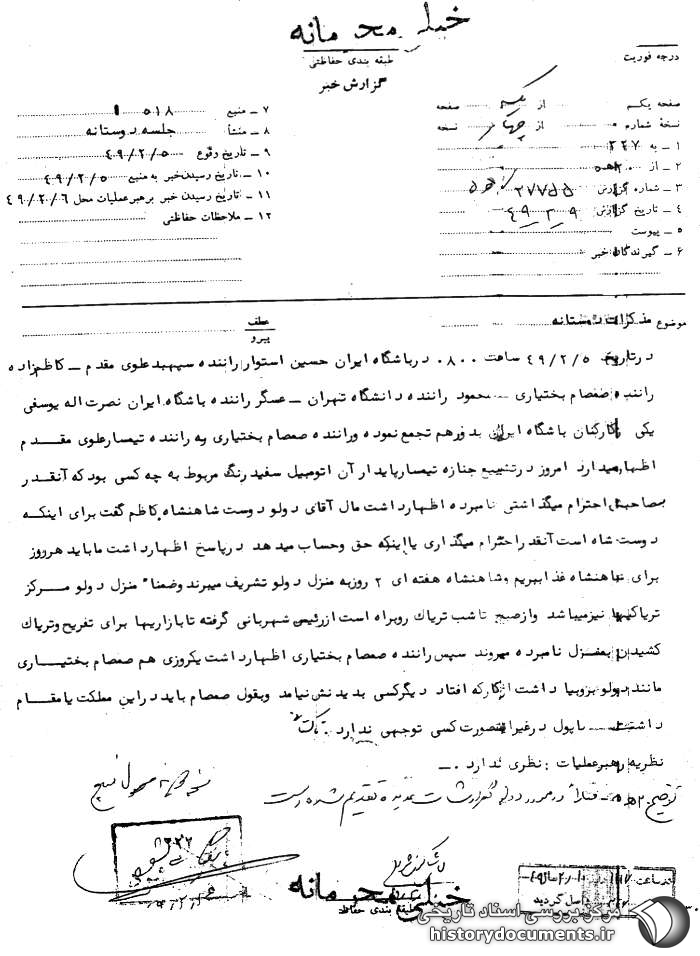 خیلی محرمانه
طبقه بندی حفاظتی
گزارش خبر
درجه فوریت
صفحه یکم از یک صفحه
نسخهٔ شماره از چهار نسخه
۱ ـ به ۳۲۷
۲ ـ از ۲۰ ه‍ ۵
۳ ـ شماره گزارش ۲۷۷۵۵
۴ ـ تاریخ گزارش ۴۹/۲/۹
۵ ـ پیوست
۶ ـ گیرندگان خبر
۷ ـ منبع ۵۱۸
۸ ـ منشأ جلسه دوستانه
۹ ـ تاریخ وقوع ۴۹/۲/۵
۱۰ ـ تاریخ رسیدن خبر به منبع ۴۹/۲/۵
۱۱ ـ تاریخ رسیدن خبر برهبر عملیات محل ۴۹/۲/۶
۱۲ ـ ملاحظات حفاظتی
موضوع مذکرات دوستانه
عطف
پیرو
درتاریخ ۴۹/۲/۵ ساعت ۰۸۰۰ درباشگاه ایران حسین استوار راننده سپهبد علوی مقدم ـ کاظم زاده
راننده صمصام بختیاری ـ محمود راننده دانشگاه تهران ـ عسگر راننده باشگاه ایران نصرت اله یوسفی
یکی ازکارکنان باشگاه ایران بدورهم تجمع نموده وراننده صمصام بختیاری به راننده تیمسارعلوی مقدم
اظهارمیدارد امروز درتشییع جنازه تیمسارپایدار آن اتومبیل سفید رنگ مربوط به چه کسی بود که آنقدر
بصاحبش احترام میگذاشتی نامبرده اظهارداشت مال آقای دولو دوست شاهنشاه کاظم گفت برای اینکه
دوست شاه است آنقدراحترام میگذاری یااینکه حق وحساب میدهد درپاسخ اظهارداشت ما باید هرروز
برای شاهنشاه غذا ببریم وشاهنشاه هفته ای ۲ روزبه منزل دولو تشریف میبرند وضمنا" منزل دولو مرکز
تریاکیها نیزمیباشد وازصبح تاشب تریاک روبراه است ازرئیس شهربانی گرفته تابازاریها برای تفریح وتریاک
کشیدن بمنزل نامبرده میروند سپس راننده صمصام بختیاری اظهارداشت یکروزی هم صمصام بختیاری
مانند دولو بروبیا داشت ازکارکه افتاد دیگرکسی بدیدنش نیامد وبقول صمصام باید دراین مملکت یامقام
داشت یاپول درغیراینصورت کسی توجهی ندارد.
نظریه رهبرعملیات : نظری ندارد ـ.
گزارشات عدیده تقدیم شده است
خیلی محرمانه
طبقه بندی حفاظتی
مرکز بررسی اسناد تاریخی
historydocuments.ir